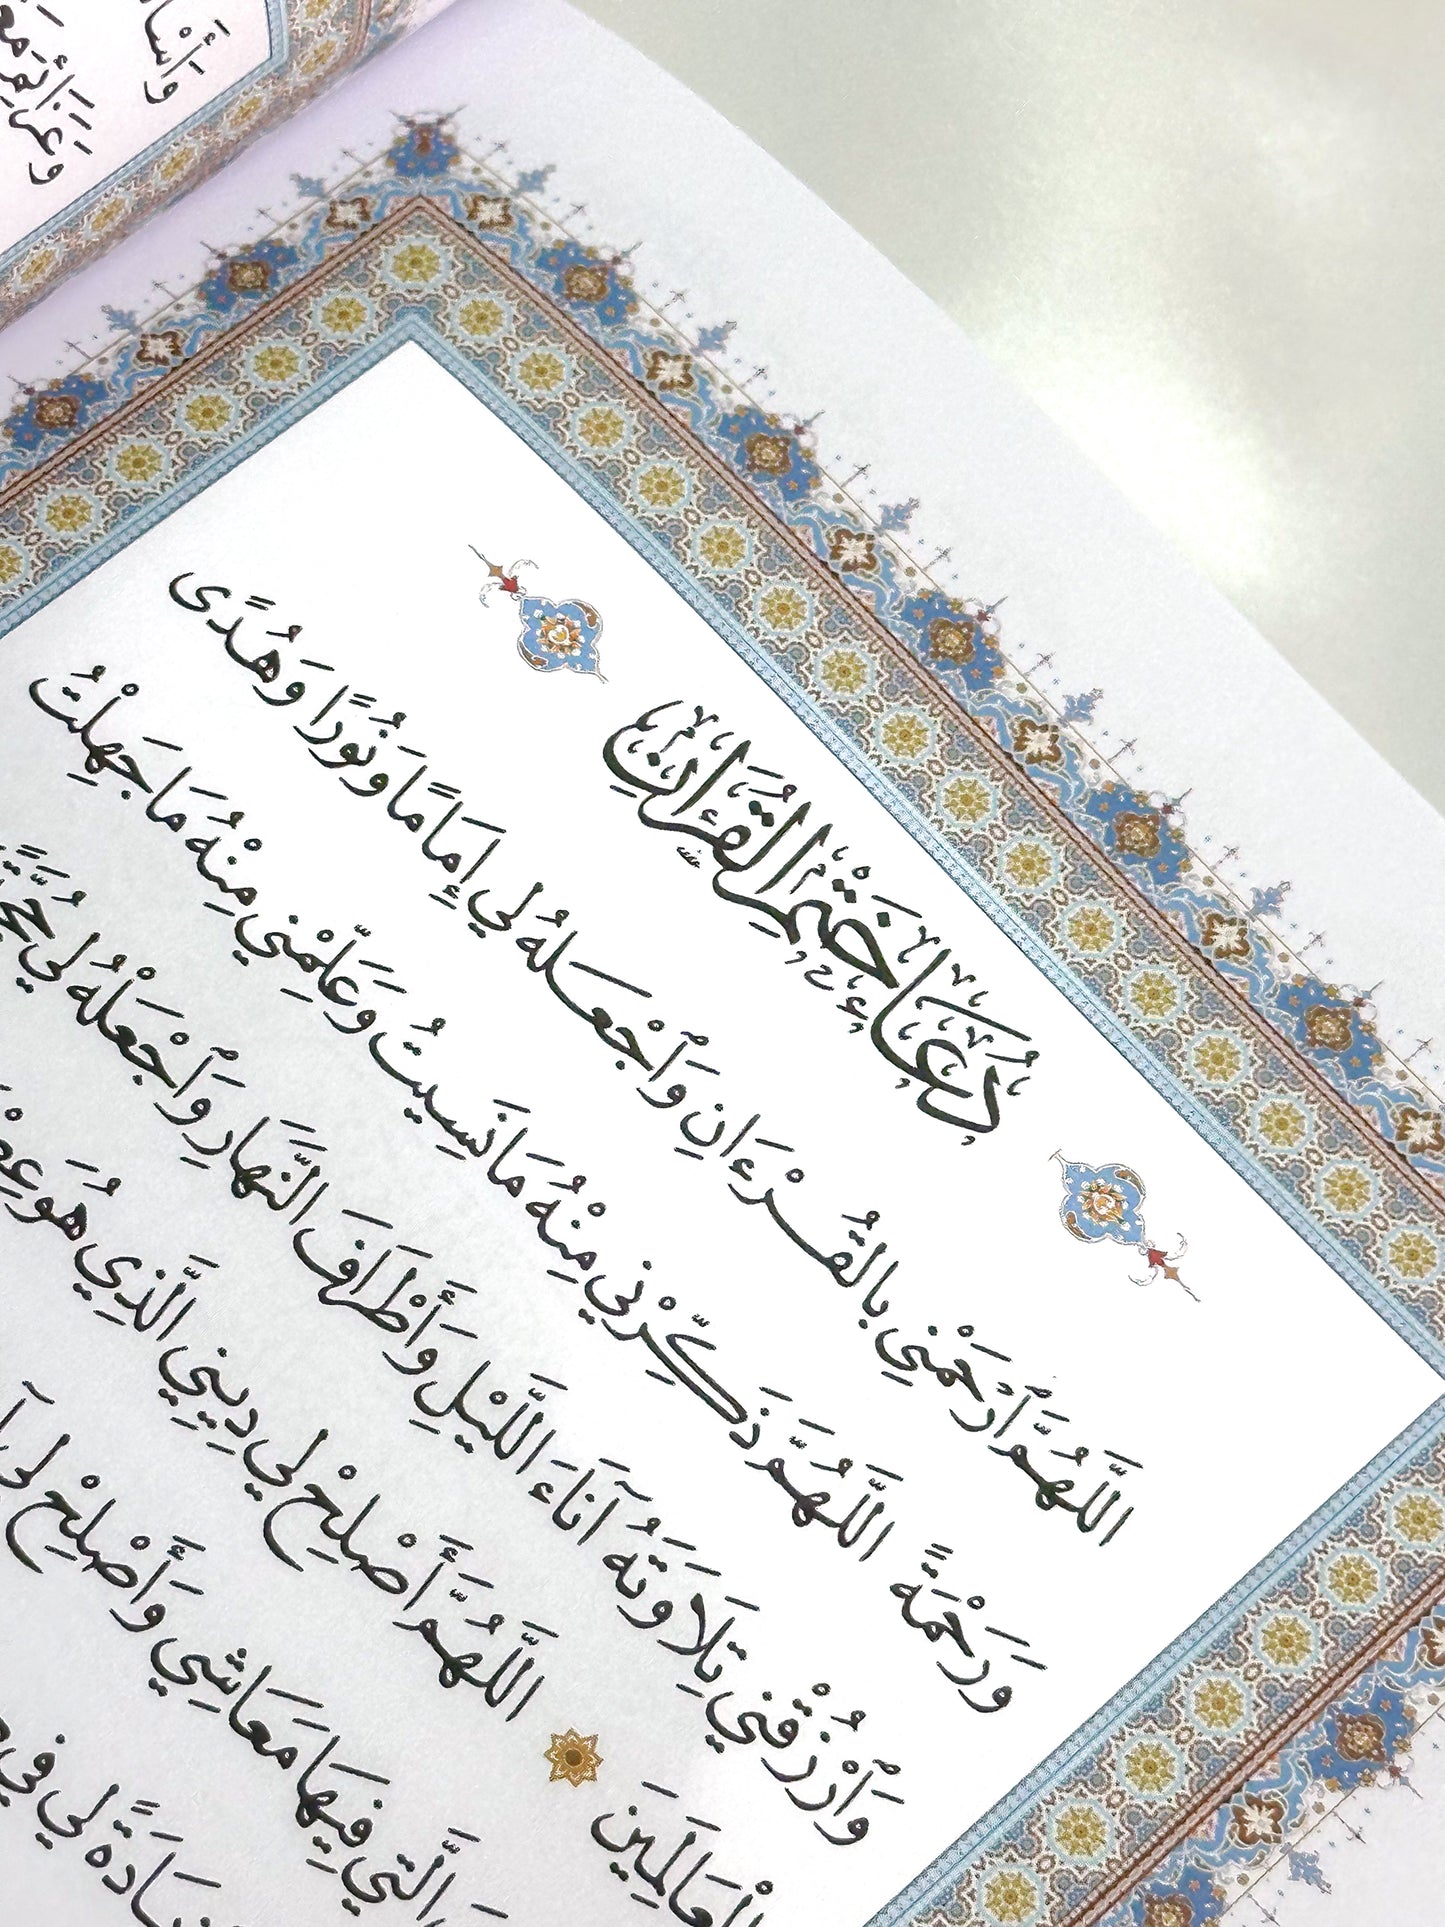 وَأَسْأَ
وَعَزَائِمَ
دُعَاءُ خَتْمِ الْقُرْآنِ
اللَّهُمَّ ٱرْحَمْنِي بِالقُرْءَانِ وَٱجْعَلهُ لِي إِمَامًا وَنُورًا وَهُدًى
وَرَحْمَةً اللَّهُمَّ ذَكِّرْنِي مِنْهُ مَا نَسِيتُ وَعَلِّمْنِي مِنْهُ مَا جَهِلْتُ
وَٱرْزُقْنِي تِلَاوَتَهُ آنَاءَ اللَّيْلِ وَأَطْرَافَ النَّهَارِ وَٱجْعَلْهُ لِي حُجَّةً
الْعَالَمِينَ اللَّهُمَّ أَصْلِحْ لِي دِينِي الَّذِي هُوَ
الَّتِي فِيهَا مَعَاشِي وَأَصْلِحْ لِي
لِي فِي